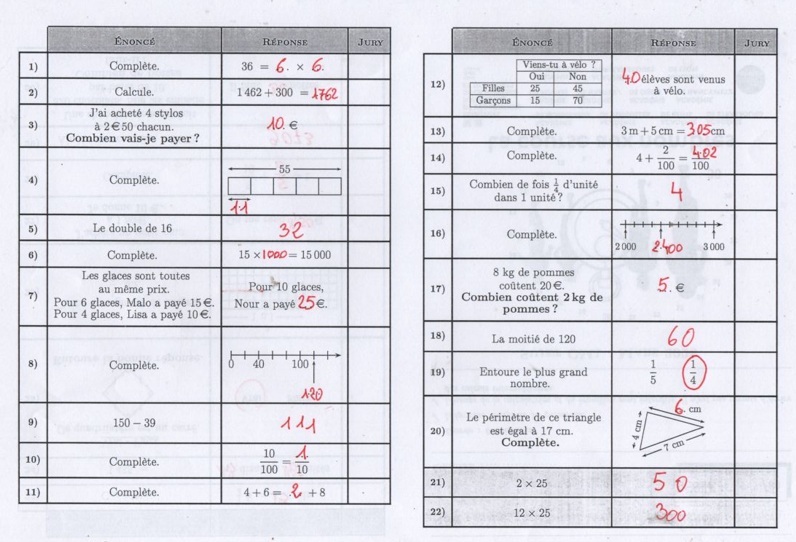 ÉNONCÉ RÉPONSE JURY
1) Complète. 36 = 6. × 6.
2) Calcule. 1 462 + 300 = 1762
3) J'ai acheté 4 stylos
à 2 € 50 chacun.
Combien vais-je payer ?
10. €
4) Complète.
55
11
5) Le double de 16 32
6) Complète. 15 × 1000 = 15 000
7) Les glaces sont toutes
au même prix.
Pour 6 glaces, Malo a payé 15 €.
Pour 4 glaces, Lisa a payé 10 €.
Pour 10 glaces,
Nour a payé 25 €.
8) Complète.
0 40 100
120
9) 150 − 39 111
10) Complète. 10/100 = 1/10
11) Complète. 4 + 6 = .2 + 8
ÉNONCÉ RÉPONSE JURY
12) Viens-tu à vélo ?
Oui Non
Filles 25 45
Garçons 15 70
40 élèves sont venus
à vélo.
13) Complète. 3 m + 5 cm = 305 cm
14) Complète. 4 + 2/100 = 402/100
15) Combien de fois 1/4 d'unité
dans 1 unité ?
4
16) Complète.
2 000 2.400 3 000
17) 8 kg de pommes
coûtent 20 €.
Combien coûtent 2 kg de
pommes ?
5. €
18) La moitié de 120 60
19) Entoure le plus grand
nombre.
1/5 1/4
20) Le périmètre de ce triangle
est égal à 17 cm.
Complète.
6. cm
4 cm
7 cm
21) 2 × 25 50
22) 12 × 25 300